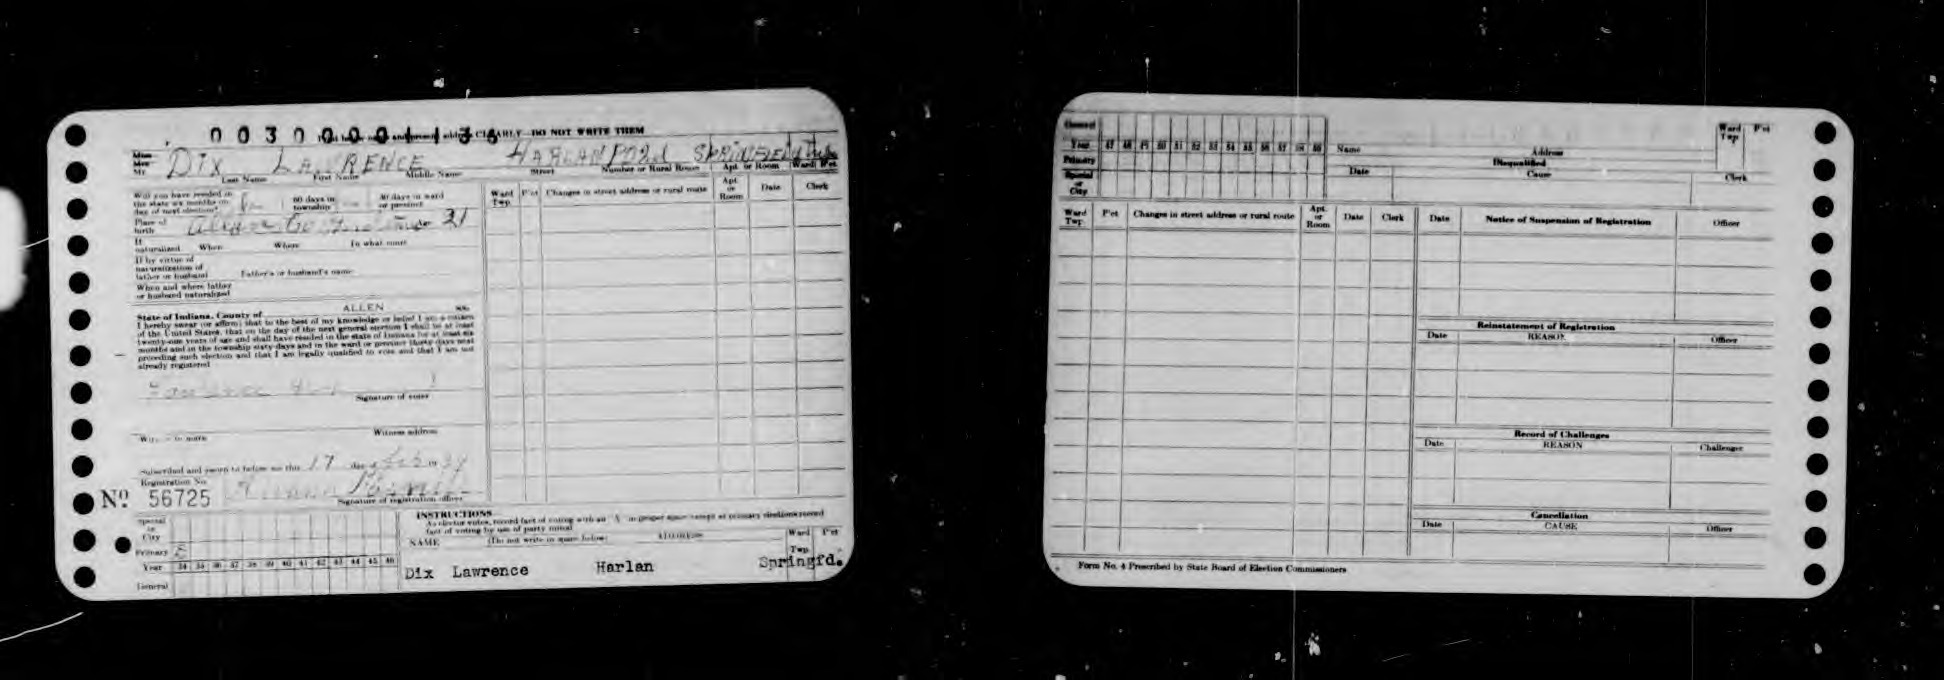 003000011
CLEARLY—DO NOT WRITE THEM
Miss
Mrs.
Mr. DIX LAWRENCE HARLAN SPRINGFIELD
Last Name First Name Middle Name Street Number or Rural Route Apt. or Room Ward P'ct
Will you have resided in
the state six months on
day of next election? 60 days in
township 30 days in ward
or precinct
Place of
birth Age 21
If
naturalized When Where In what court
If by virtue of
naturalization of
father or husband Father's or husband's name
When and where father
or husband naturalized
State of Indiana, County of ALLEN ss.
I hereby swear (or affirm) that to the best of my knowledge or belief I am a citizen
of the United States, that on the day of the next general election I shall be at least
twenty-one years of age and shall have resided in the state of Indiana for at least six
months and in the township sixty days and in the ward or precinct thirty days next
preceding such election and that I am legally qualified to vote and that I am not
already registered
Lawrence Dix
Signature of voter
Witness to mark Witness address
Subscribed and sworn to before me this 17 day Feb
Registration No.
Nº 56725
Signature of registration officer
Ward
Twp. P'ct Changes in street address or rural route Apt.
or
Room Date Clerk
Special
or
City
Primary
Year 34 35 36 37 38 39 40 41 42 43 44 45 46
General
INSTRUCTIONS
As elector votes, record fact of voting with an X in proper space except at primary elections record
fact of voting by use of party initial
NAME (Do not write in space below) ADDRESS Ward
Twp. P'ct
Dix Lawrence Harlan Springfd.
General
Year 47 48 49 50 51 52 53 54 55 56 57 58 59
Primary
Special
or
City
Name Address Ward
Twp P'ct
Disqualified
Date Cause Clerk
Ward
Twp P'ct Changes in street address or rural route Apt.
or
Room Date Clerk
Date Notice of Suspension of Registration Officer
Reinstatement of Registration
Date REASON Officer
Record of Challenges
Date REASON Challenger
Cancellation
Date CAUSE Officer
Form No. 4 Prescribed by State Board of Election Commissioners